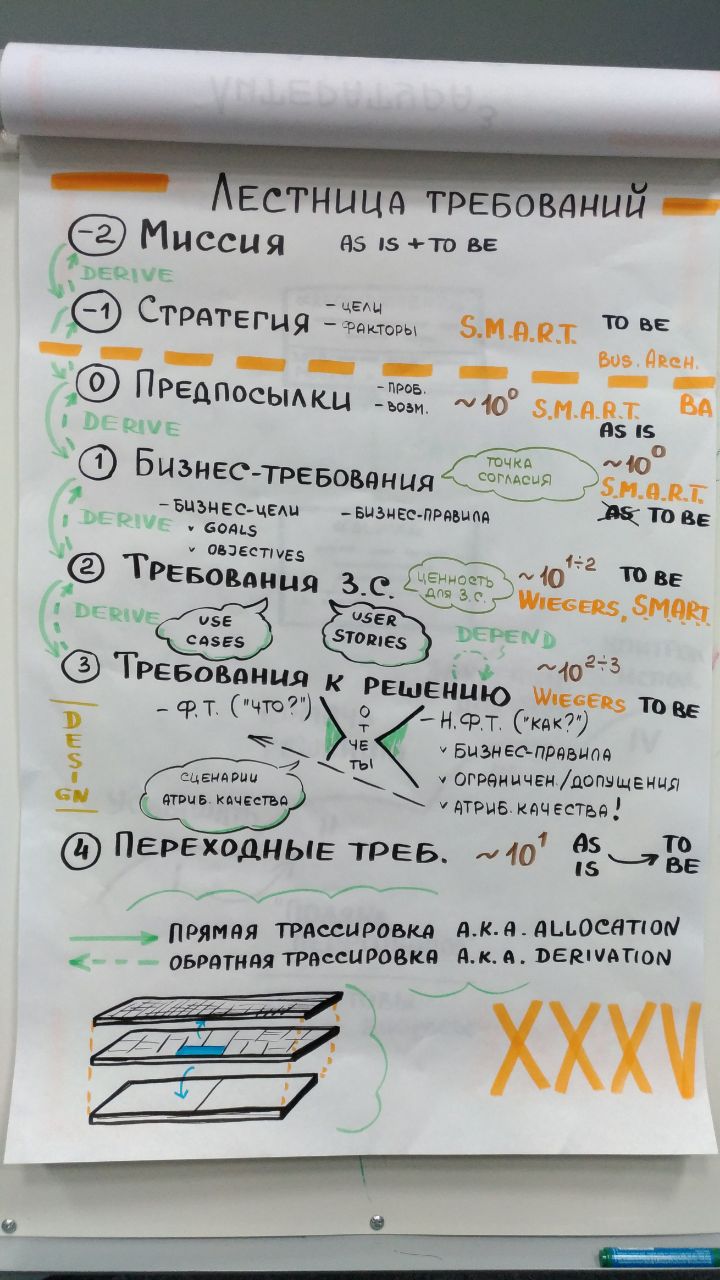 ЛЕСТНИЦА ТРЕБОВАНИЙ
-2 МИССИЯ AS IS + TO BE
DERIVE
-1 СТРАТЕГИЯ - ЦЕЛИ - ФАКТОРЫ S.M.A.R.T. TO BE
BUS. ARCH.
0 ПРЕДПОСЫЛКИ - ПРОБ. - ВОЗМ. ~10⁰ S.M.A.R.T. BA
DERIVE
AS IS
1 БИЗНЕС-ТРЕБОВАНИЯ ТОЧКА СОГЛАСИЯ ~10⁰
S.M.A.R.T.
DERIVE - БИЗНЕС-ЦЕЛИ - БИЗНЕС-ПРАВИЛА AS TO BE
✓ GOALS
✓ OBJECTIVES
2 ТРЕБОВАНИЯ З.С. ЦЕННОСТЬ ДЛЯ З.С. ~10¹÷² TO BE
WIEGERS, SMART
DERIVE USE CASES USER STORIES DEPEND
3 ТРЕБОВАНИЯ К РЕШЕНИЮ ~10²÷³
WIEGERS TO BE
DESIGN
- Ф.Т. ("ЧТО?") ОТЧЕТЫ - Н.Ф.Т. ("КАК?")
✓ БИЗНЕС-ПРАВИЛА
✓ ОГРАНИЧЕН./ДОПУЩЕНИЯ
✓ АТРИБ. КАЧЕСТВА!
СЦЕНАРИИ
АТРИБ. КАЧЕСТВА
4 ПЕРЕХОДНЫЕ ТРЕБ. ~10¹ AS IS → TO BE
ПРЯМАЯ ТРАССИРОВКА A.K.A. ALLOCATION
ОБРАТНАЯ ТРАССИРОВКА A.K.A. DERIVATION
XXXV